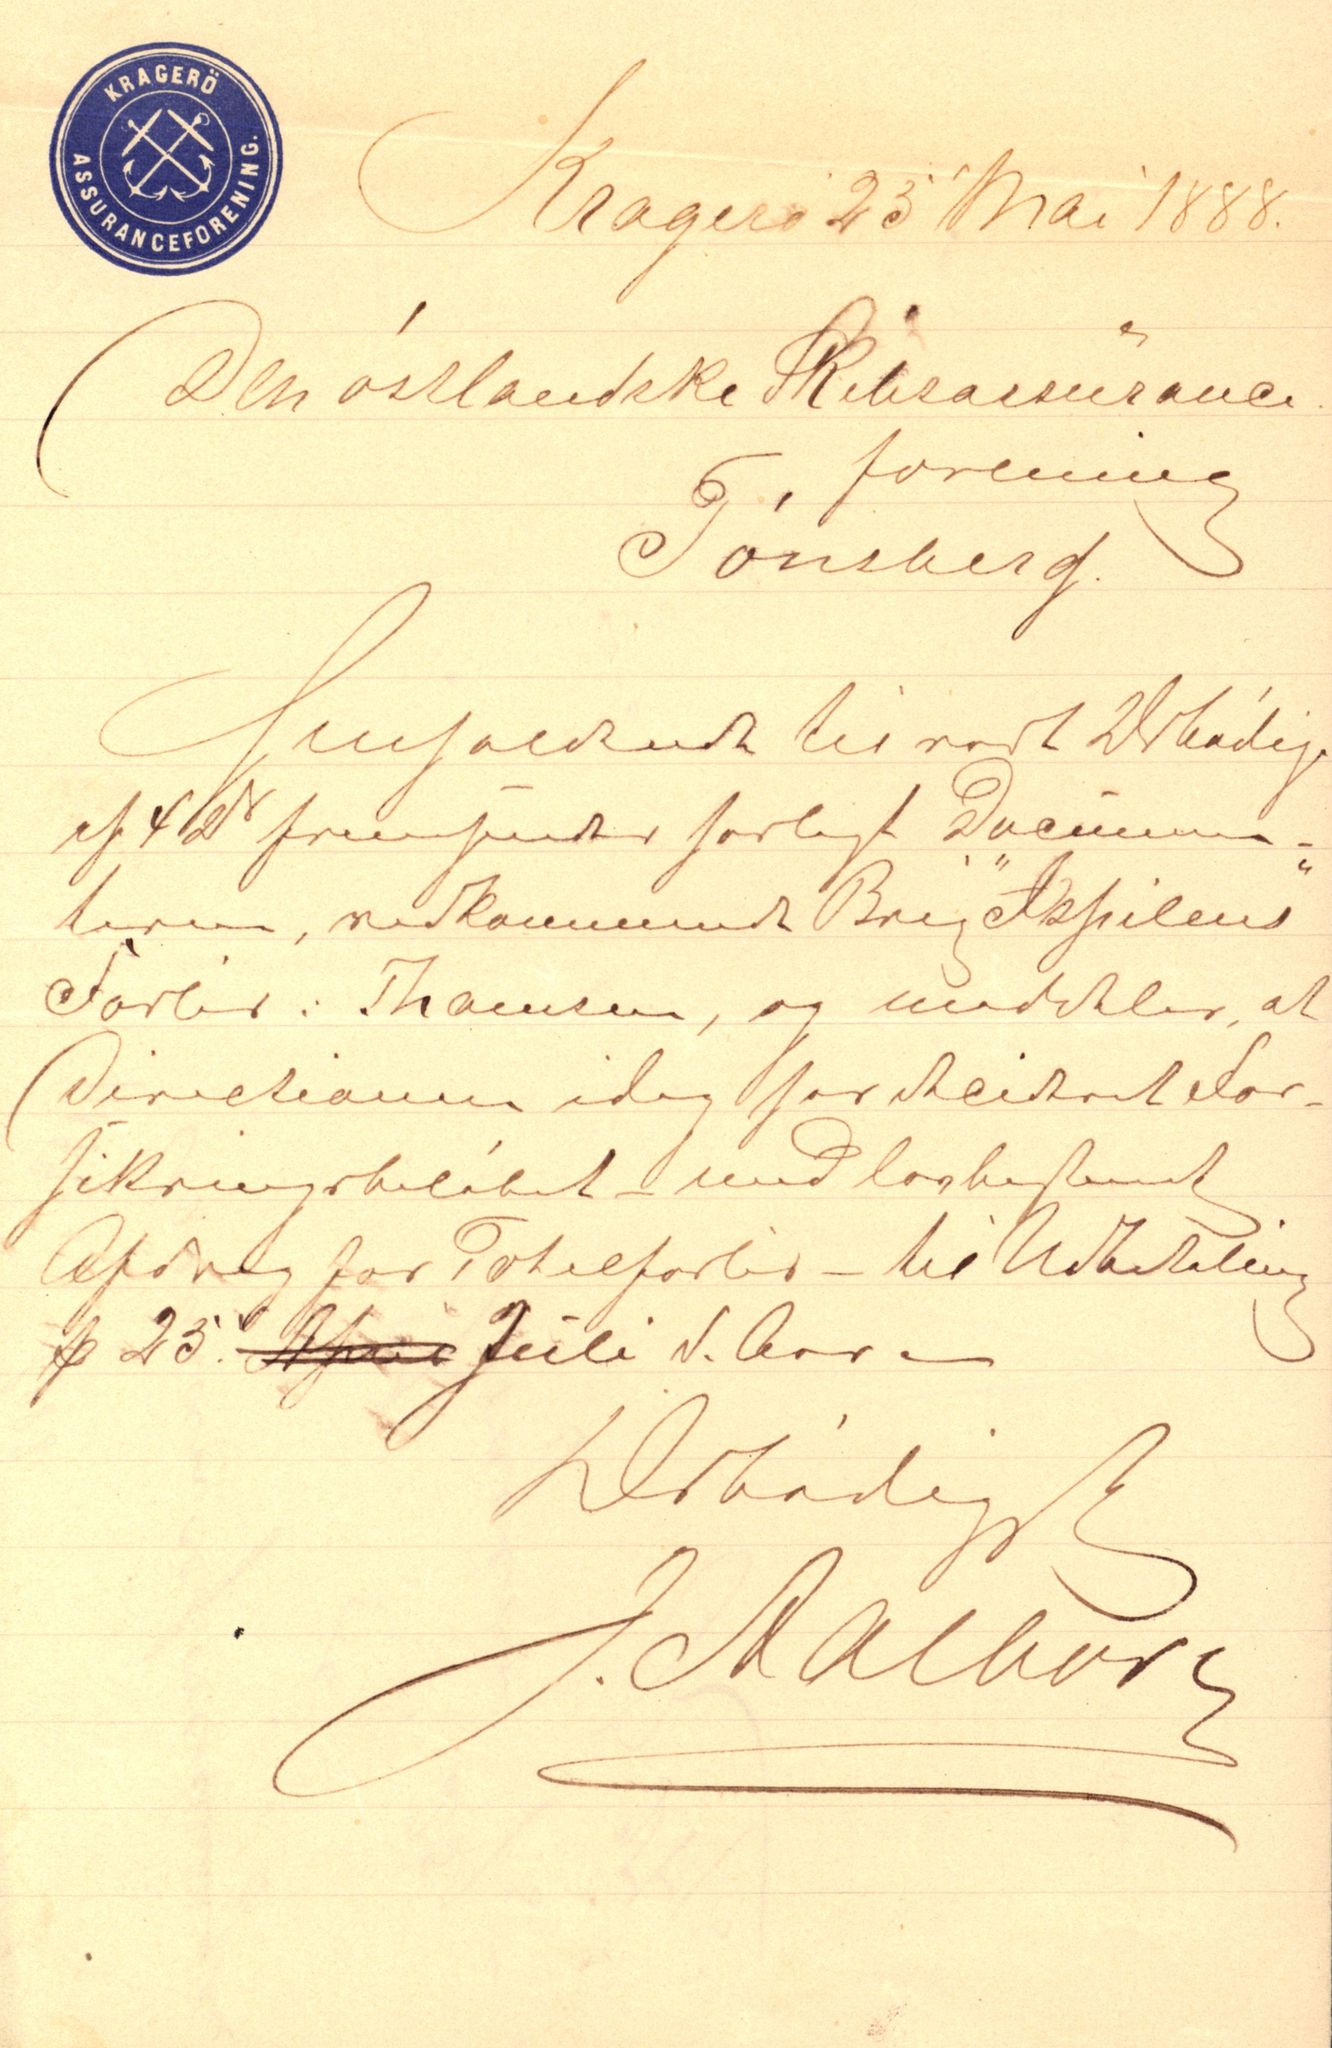 KRAGERÖ
ASSURANCEFORENING.
Kragerø 25 Mai 1888.
Den østlandske Skibsassurance
forening
Tønsberg.
Henholdende til vort Ærbødige
af 4 ds fremsendes hoslagt Documen-
terne, vedkommende Brig "
Forlis: Thamsen, og meddeler, at
Directionen idag har decideret For-
sikringsbeløbet - med lovbestemt
Afdrag for Totalforlis - til Udbetaling
p 25. April Juli d. Aar
Ærbødigst
J. Aalborg